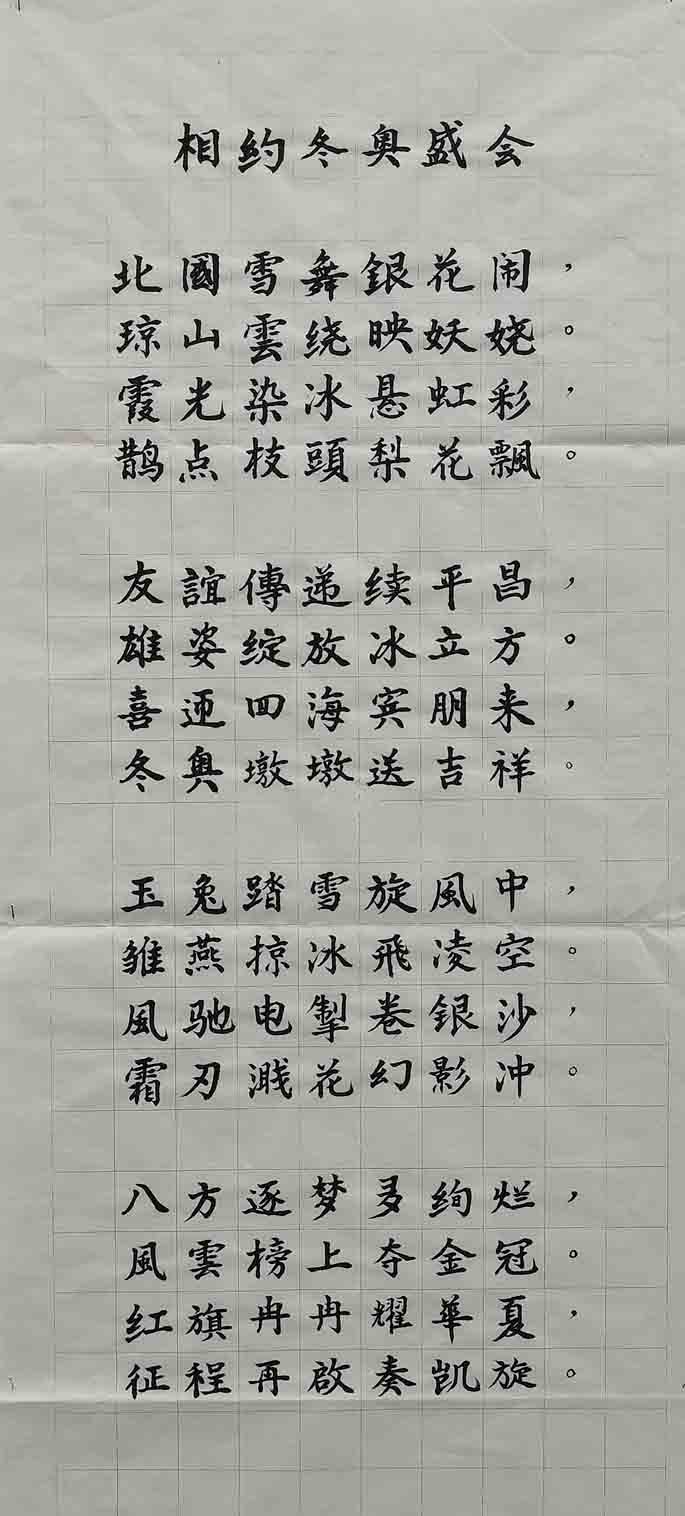 相约冬奥盛会
北國雪舞銀花闹，
琼山雲绕映妖娆。
霞光染冰悬虹彩，
鹊点枝頭梨花飄。
友誼傳递续平昌，
雄姿绽放冰立方。
喜迎四海宾朋来，
冬奥墩墩送吉祥。
玉兔踏雪旋風中，
雏燕掠冰飛凌空。
風驰电掣卷銀沙，
霜刃溅花幻影冲。
八方逐梦多绚烂，
風雲榜上夺金冠。
红旗冉冉耀華夏，
征程再啟奏凯旋。